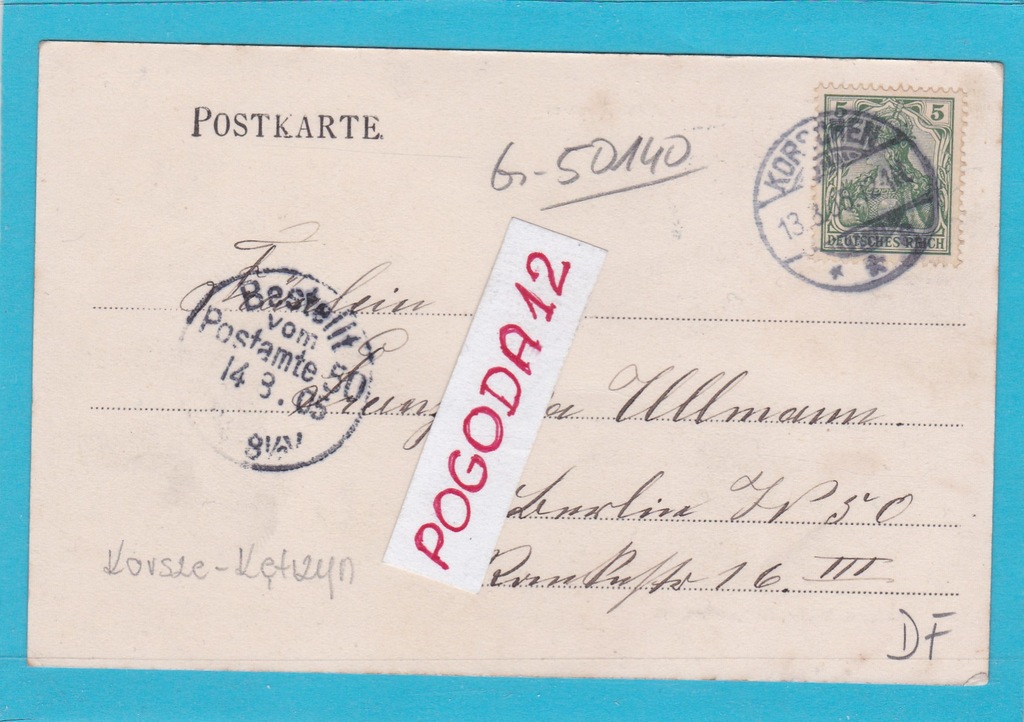 POSTKARTE
Gr-50140
5 5
KORSCHEN
13.3.
DEUTSCHES REICH
Fräulein
Bestellt
vom
Postamte 50
14 3. 05
8½V
POGODA 12
Ullmann.
Berlin W 50
16. III
Korsze-Kętrzyn
DF